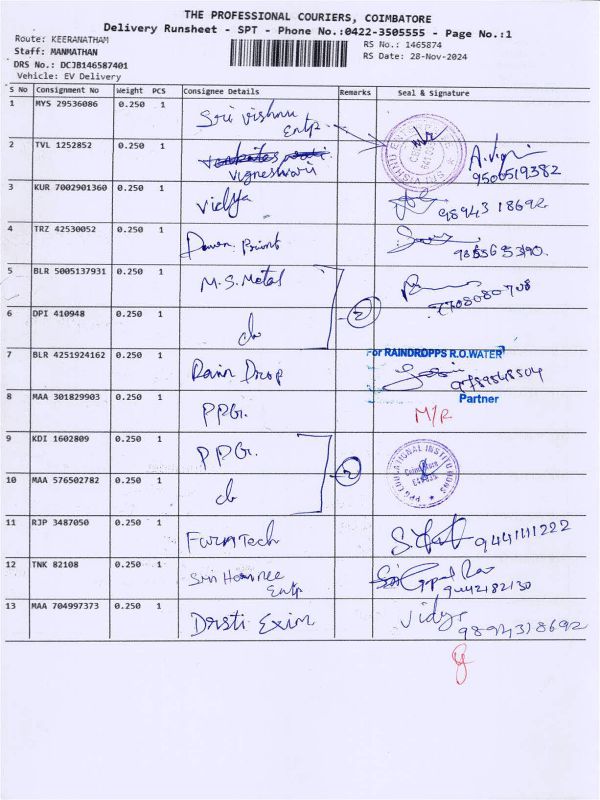 THE PROFESSIONAL COURIERS, COIMBATORE
Delivery Runsheet - SPT - Phone No.:0422-3505555 - Page No.:1
Route: KEERANATHAM
RS No.: 1465874
Staff: MANMATHAN
RS Date: 28-Nov-2024
DRS No.: DCJB146587401
Vehicle: EV Delivery
S No Consignment No Weight PCS Consignee Details Remarks Seal & Signature
1 MYS 29536086 0.250 1 Sri Vishnu Entp
2 TVL 1252852 0.250 1 Vigneswari 9500519382
3 KUR 7002901360 0.250 1 Vidya 98943 18692
4 TRZ 42530052 0.250 1 Dawn Print
5 BLR 5005137931 0.250 1 M.S. Metal 7708080708
6 DPI 410948 0.250 1 do 2
7 BLR 4251924162 0.250 1 Rain Drop
For RAINDROPPS R.O.WATER
9789548504
Partner
8 MAA 301829903 0.250 1 PPG. M/R
9 KDI 1602809 0.250 1 PPG. 2
PPG EDUCATIONAL INSTITUTIONS
Coimbatore
10 MAA 576502782 0.250 1 do
11 RJP 3487050 0.250 1 Farm Tech 9441111222
12 TNK 82108 0.250 1 Entp Gopal Rao 9442182130
13 MAA 704997373 0.250 1 Drsti Exim Vidya 9894318692